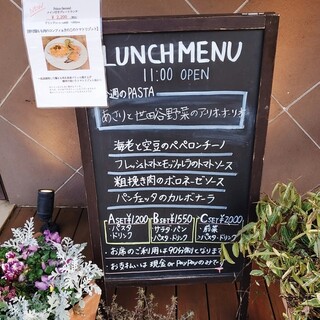 LUNCH MENU
11:00 OPEN
週のPASTA
あさりと世田谷野菜のアーリオ・オーリオ
海老と空豆のペペロンチーノ
フレッシュトマトとモッツァレラのトマトソース
粗挽き肉のボロネーゼソース
パンチェッタのカルボナーラ
A SET ¥1200 B SET ¥1550 C SET ¥2000
・パスタ ・サラダ・パン ・前菜
・ドリンク ・パスタ・ドリンク ・パスタ・ドリンク
・お席のご利用は90分制となります
・お支払いは現金 or PayPayのみ